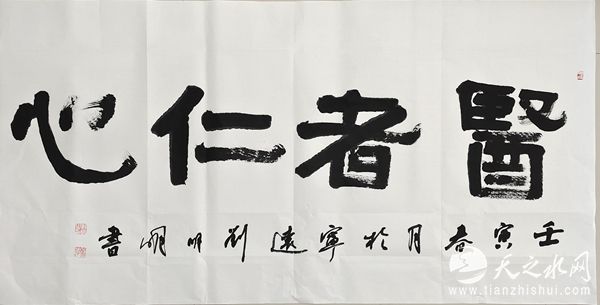 醫者仁心
壬寅春月於寧遠刘明明書
天之水网
www.tianzhishui.com